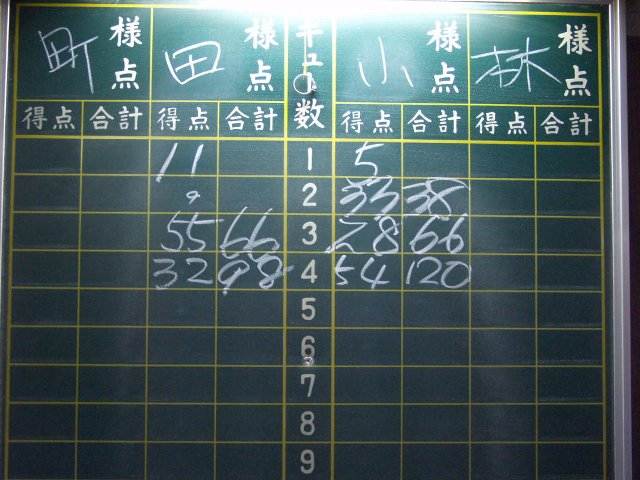 町 様 田 様 キュー 小 様 林 様
点 点 点 点
得点 合計 得点 合計 数 得点 合計 得点 合計
11 1 5
0 2 33 38
55 66 3 28 66
32 98 4 54 120
5
6
7
8
9